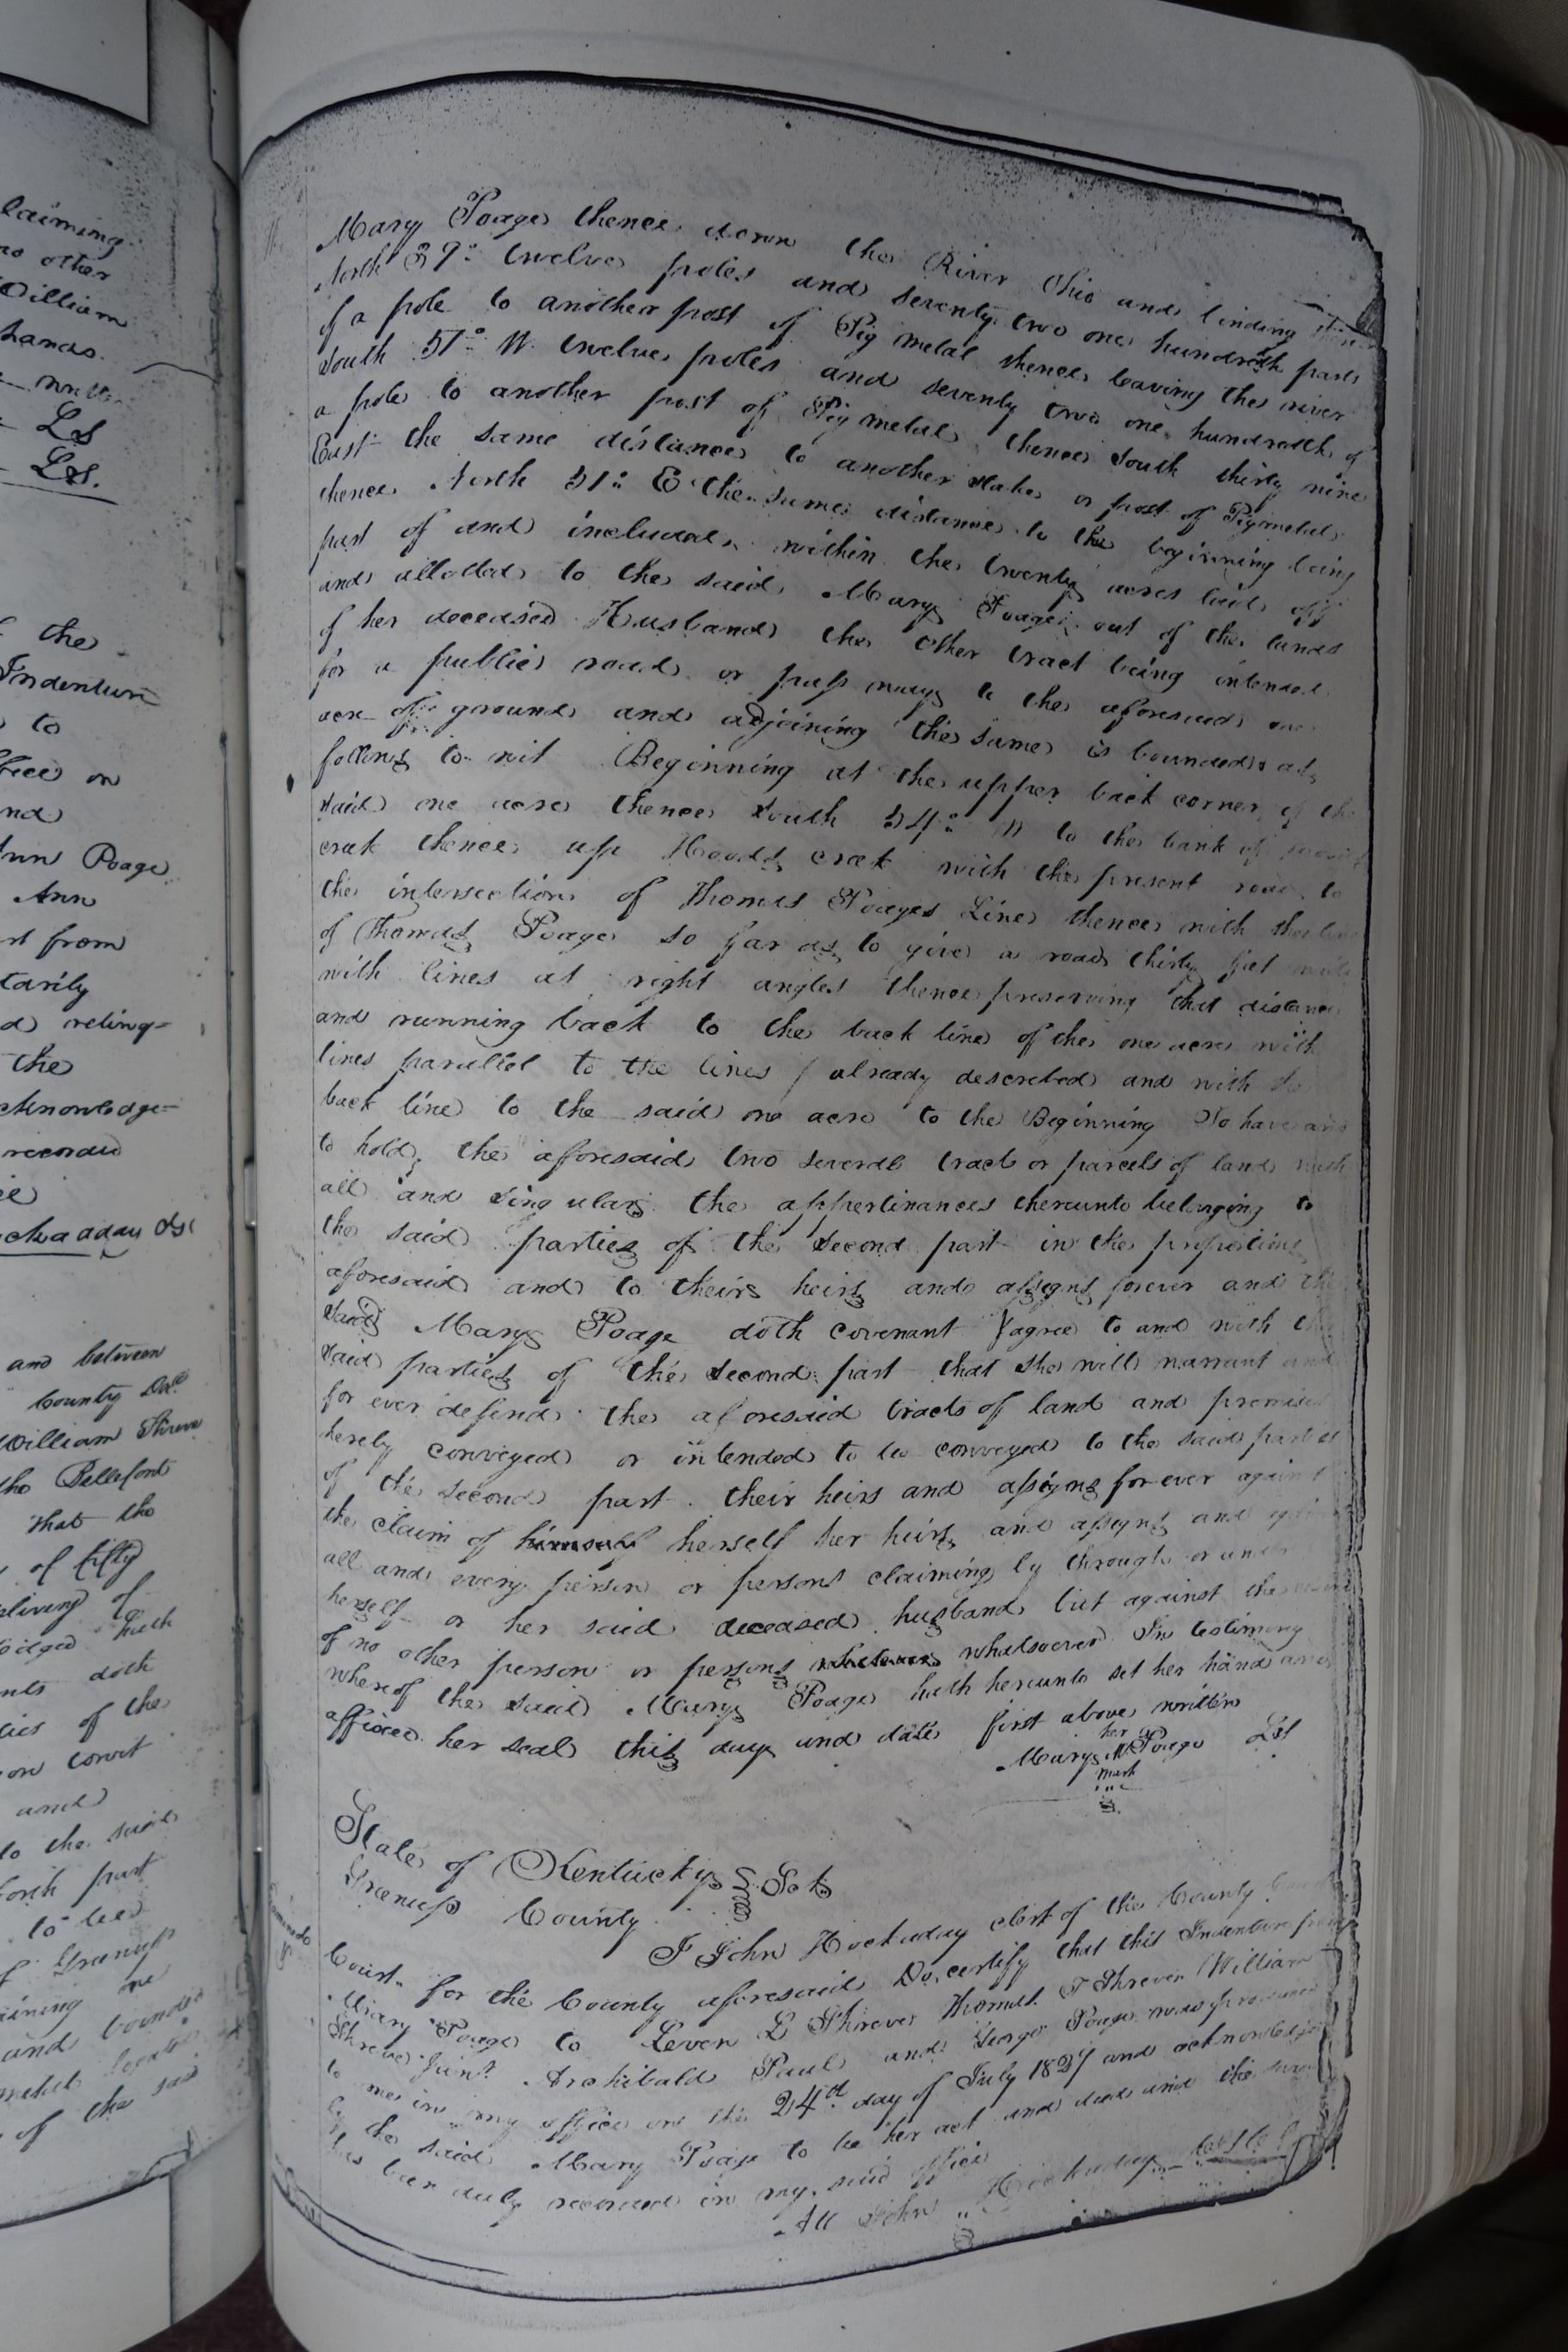 laiming
no other
William
hands
LS
LS.
the
Indenture
to
office on
and
Ann Poage
Ann
rt from
tarily
d relinq=
the
acknowledge=
recorded
and between
County
William Shreve
the Bellefont
that the
of fifty
of
hath
doth
ties of the
and
to the said
forth part
to be
of Greenup
and bounded
of the said
of
Mary Poage thence down the River Ohio and binding
North 39° twelve poles and seventy two one hundredth parts
of a pole to another post of Pig metal thence leaving the river
South 51° W twelve poles and seventy two one hundredth of
a pole to another post of Pig metal thence South thirty nine
East the same distance to another stake or post of Pigmetal
thence North 51° E the same distance to the beginning being
part of and included within the twenty acres laid off
and alloted to the said Mary Poage out of the lands
of her deceased Husband the other tract being intended
for a public road or pass way to the aforesaid one
acre of ground and adjoining the same is bounded as
follows to wit Beginning at the upper back corner of the
said one acre thence South 54° W to the bank of
creek thence up Hoods creek with the present road to
the intersection of Thomas Poages Line thence with the line
of Thomas Poage so far as to give a road thirty feet
with lines at right angles thence preserving that distance
and running back to the back line of the one acre with
lines parallel to the lines already described and with the
back line to the said one acre to the Beginning To have and
to hold the aforesaid two several tracts or parcels of land with
all and singular the appertinances thereunto belonging to
the said parties of the second part in the proportions
aforesaid and to theirs heirs and assigns forever and the
said Mary Poage doth covenant & agree to and with the
said parties of the second part that she will warrant and
for ever defend the aforesaid tracts of land and premises
hereby conveyed or intended to be conveyed to the said parties
of the second part their heirs and assigns for ever against
the claim of himself herself her heirs and assigns and against
all and every person or persons claiming by through or under
herself or her said deceased husband but against the claim
of no other person or persons whatsoever In testimony
whereof the said Mary Poage hath hereunto set her hand and
affixed her seal this day and date first above written
her
Mary M Poage LS
mark
State of Kentucky Sct
Greenup County
I John Hockaday clerk of the County
Court for the County aforesaid Do certify that this Indenture from
Mary Poage to Leven L Shreve Thomas T Shreve William
Shreve Junr Archibald Paul and George Poage was produced
to me in my office on the 24th day of July 1827 and acknowledged
by the said Mary Poage to be her act and deed and the same
has been duly recorded in my said office
Att John Hockaday